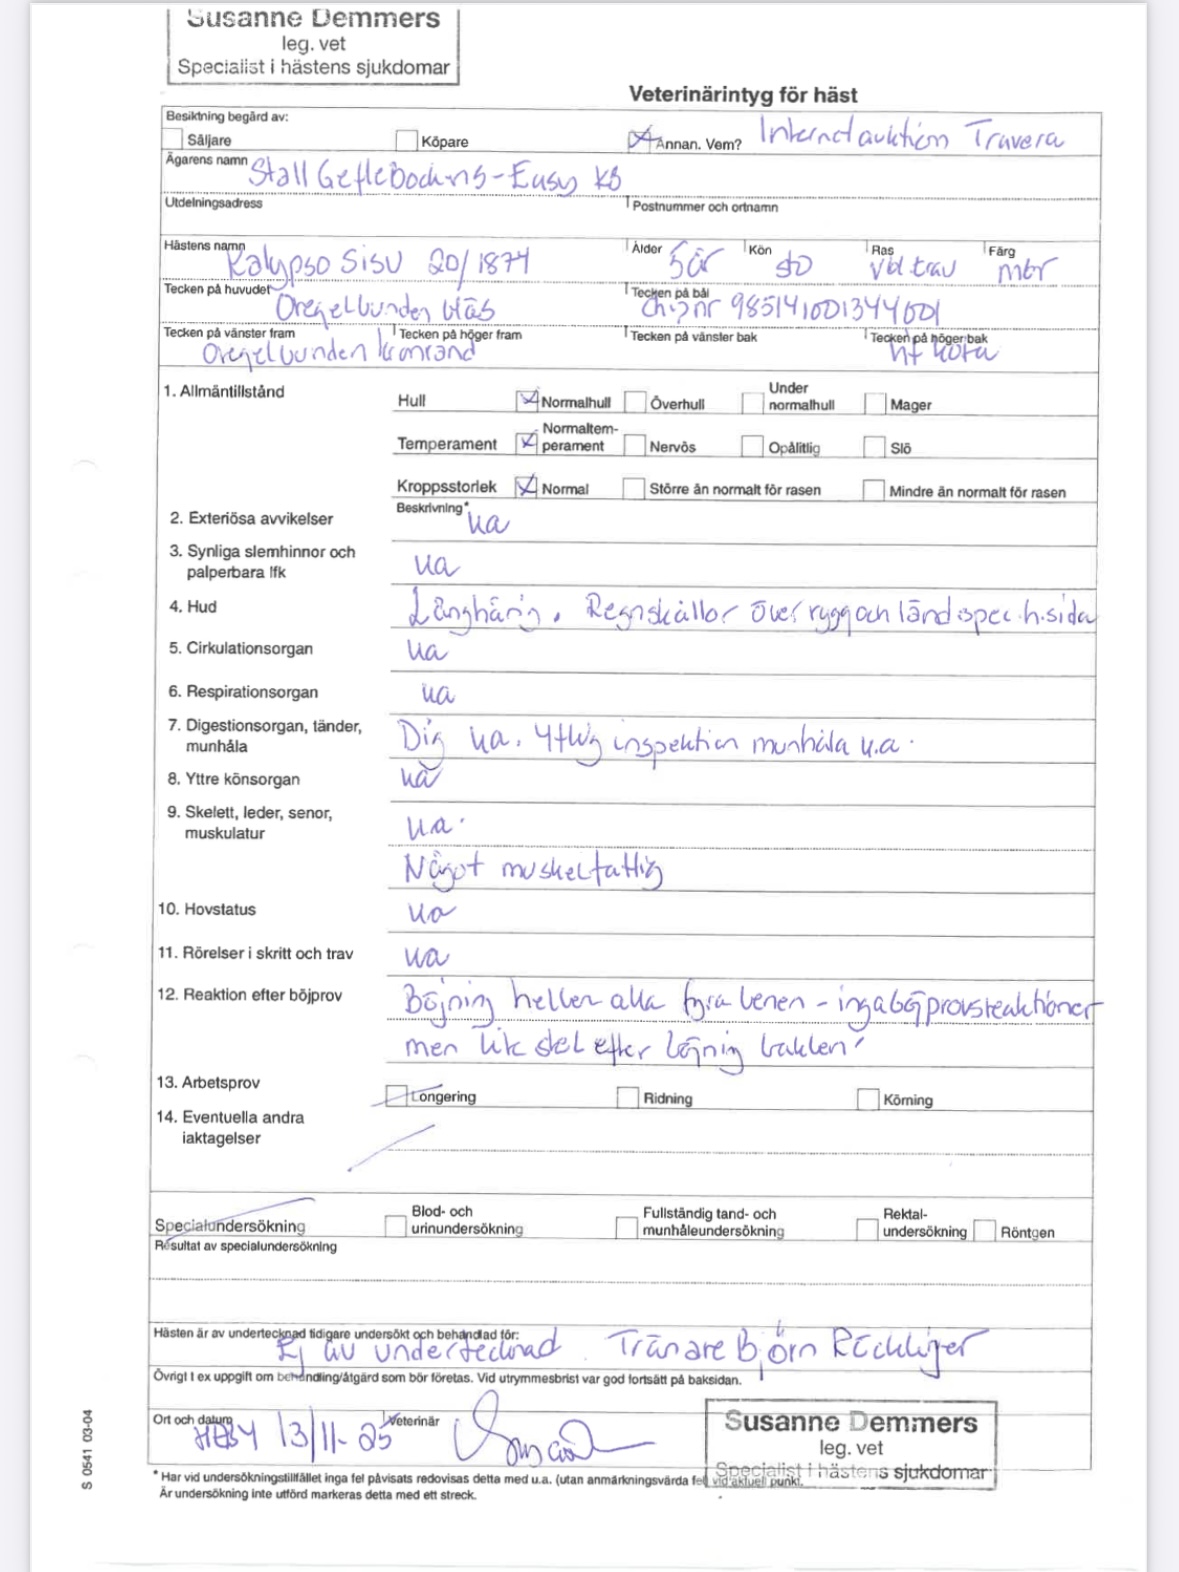 Susanne Demmers
leg. vet
Specialist i hästens sjukdomar
Veterinärintyg för häst
Besiktning begärd av:
Säljare Köpare Annan. Vem? Internetauktion Travera
Ägarens namn Stall Geflebockens-Easy KB
Utdelningsadress Postnummer och ortnamn
Hästens namn Kalypso Sisu 20/1874 Ålder 5 år Kön sto Ras vbl trav Färg mbr
Tecken på huvudet Oregelbunden bläs Tecken på bål chipnr 985141001344601
Tecken på vänster fram Tecken på höger fram Tecken på vänster bak Tecken på höger bak
Oregelbunden kronrand hf kota
1. Allmäntillstånd Hull Normalhull Överhull Under normalhull Mager
Temperament Normaltem-perament Nervös Opålitlig Slö
Kroppsstorlek Normal Större än normalt för rasen Mindre än normalt för rasen
Beskrivning*
2. Exteriösa avvikelser ua
3. Synliga slemhinnor och
palperbara lfk ua
4. Hud Långhårig. Regnskållor över rygg och länd spec. h. sida
5. Cirkulationsorgan ua
6. Respirationsorgan ua
7. Digestionsorgan, tänder,
munhåla Dig ua. Ytlig inspektion munhåla u.a.
8. Yttre könsorgan ua
9. Skelett, leder, senor,
muskulatur u.a.
Något muskelfattig
10. Hovstatus ua
11. Rörelser i skritt och trav ua
12. Reaktion efter böjprov Böjning heller alla fyra benen - inga böjprovsreaktioner
men lik stel efter böjning bakben
13. Arbetsprov Longering Ridning Körning
14. Eventuella andra
iaktagelser
Specialundersökning Blod- och urinundersökning Fullständig tand- och munhåleundersökning Rektal-undersökning Röntgen
Resultat av specialundersökning
Hästen är av undertecknad tidigare undersökt och behandlad för:
Ej av undertecknad. Tränare Björn
Övrigt t ex uppgift om behandling/åtgärd som bör företas. Vid utrymmesbrist var god fortsätt på baksidan.
Ort och datum HEBY 13/11-25 Veterinär
Susanne Demmers
leg. vet
Specialist i hästens sjukdomar
* Har vid undersökningstillfället inga fel påvisats redovisas detta med u.a. (utan anmärkningsvärda fel) vid aktuell punkt.
Är undersökning inte utförd markeras detta med ett streck.
S 0541 03-04